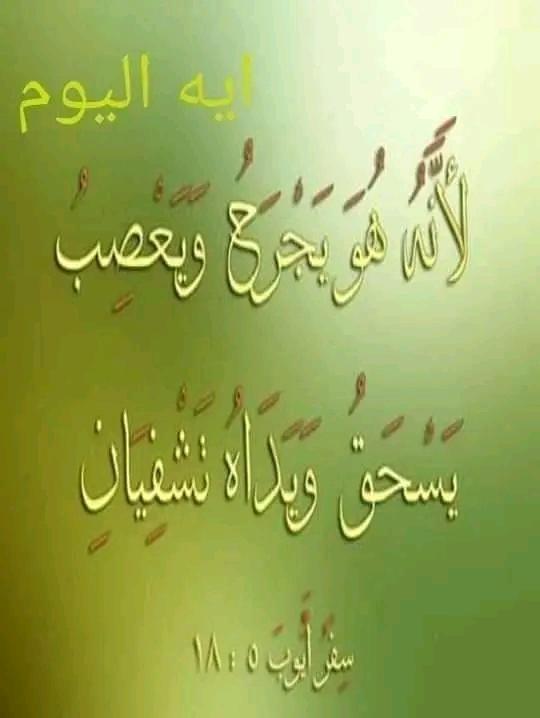 ايه اليوم
لأَنَّهُ هُوَ يَجْرَحُ وَيَعْصِبُ
يَسْحَقُ وَيَدَاهُ تَشْفِيَانِ
سِفْرُ أَيُّوبَ ٥ : ١٨